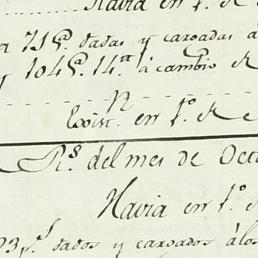 Havia en 1.º de
715 p.s dadas y cargadas á
1045 p. 14.a á cambio de
N
Exist. en 1.º de
R.s del mes de Oct
Havia en 1.º
93 p.s dados y cargados á los